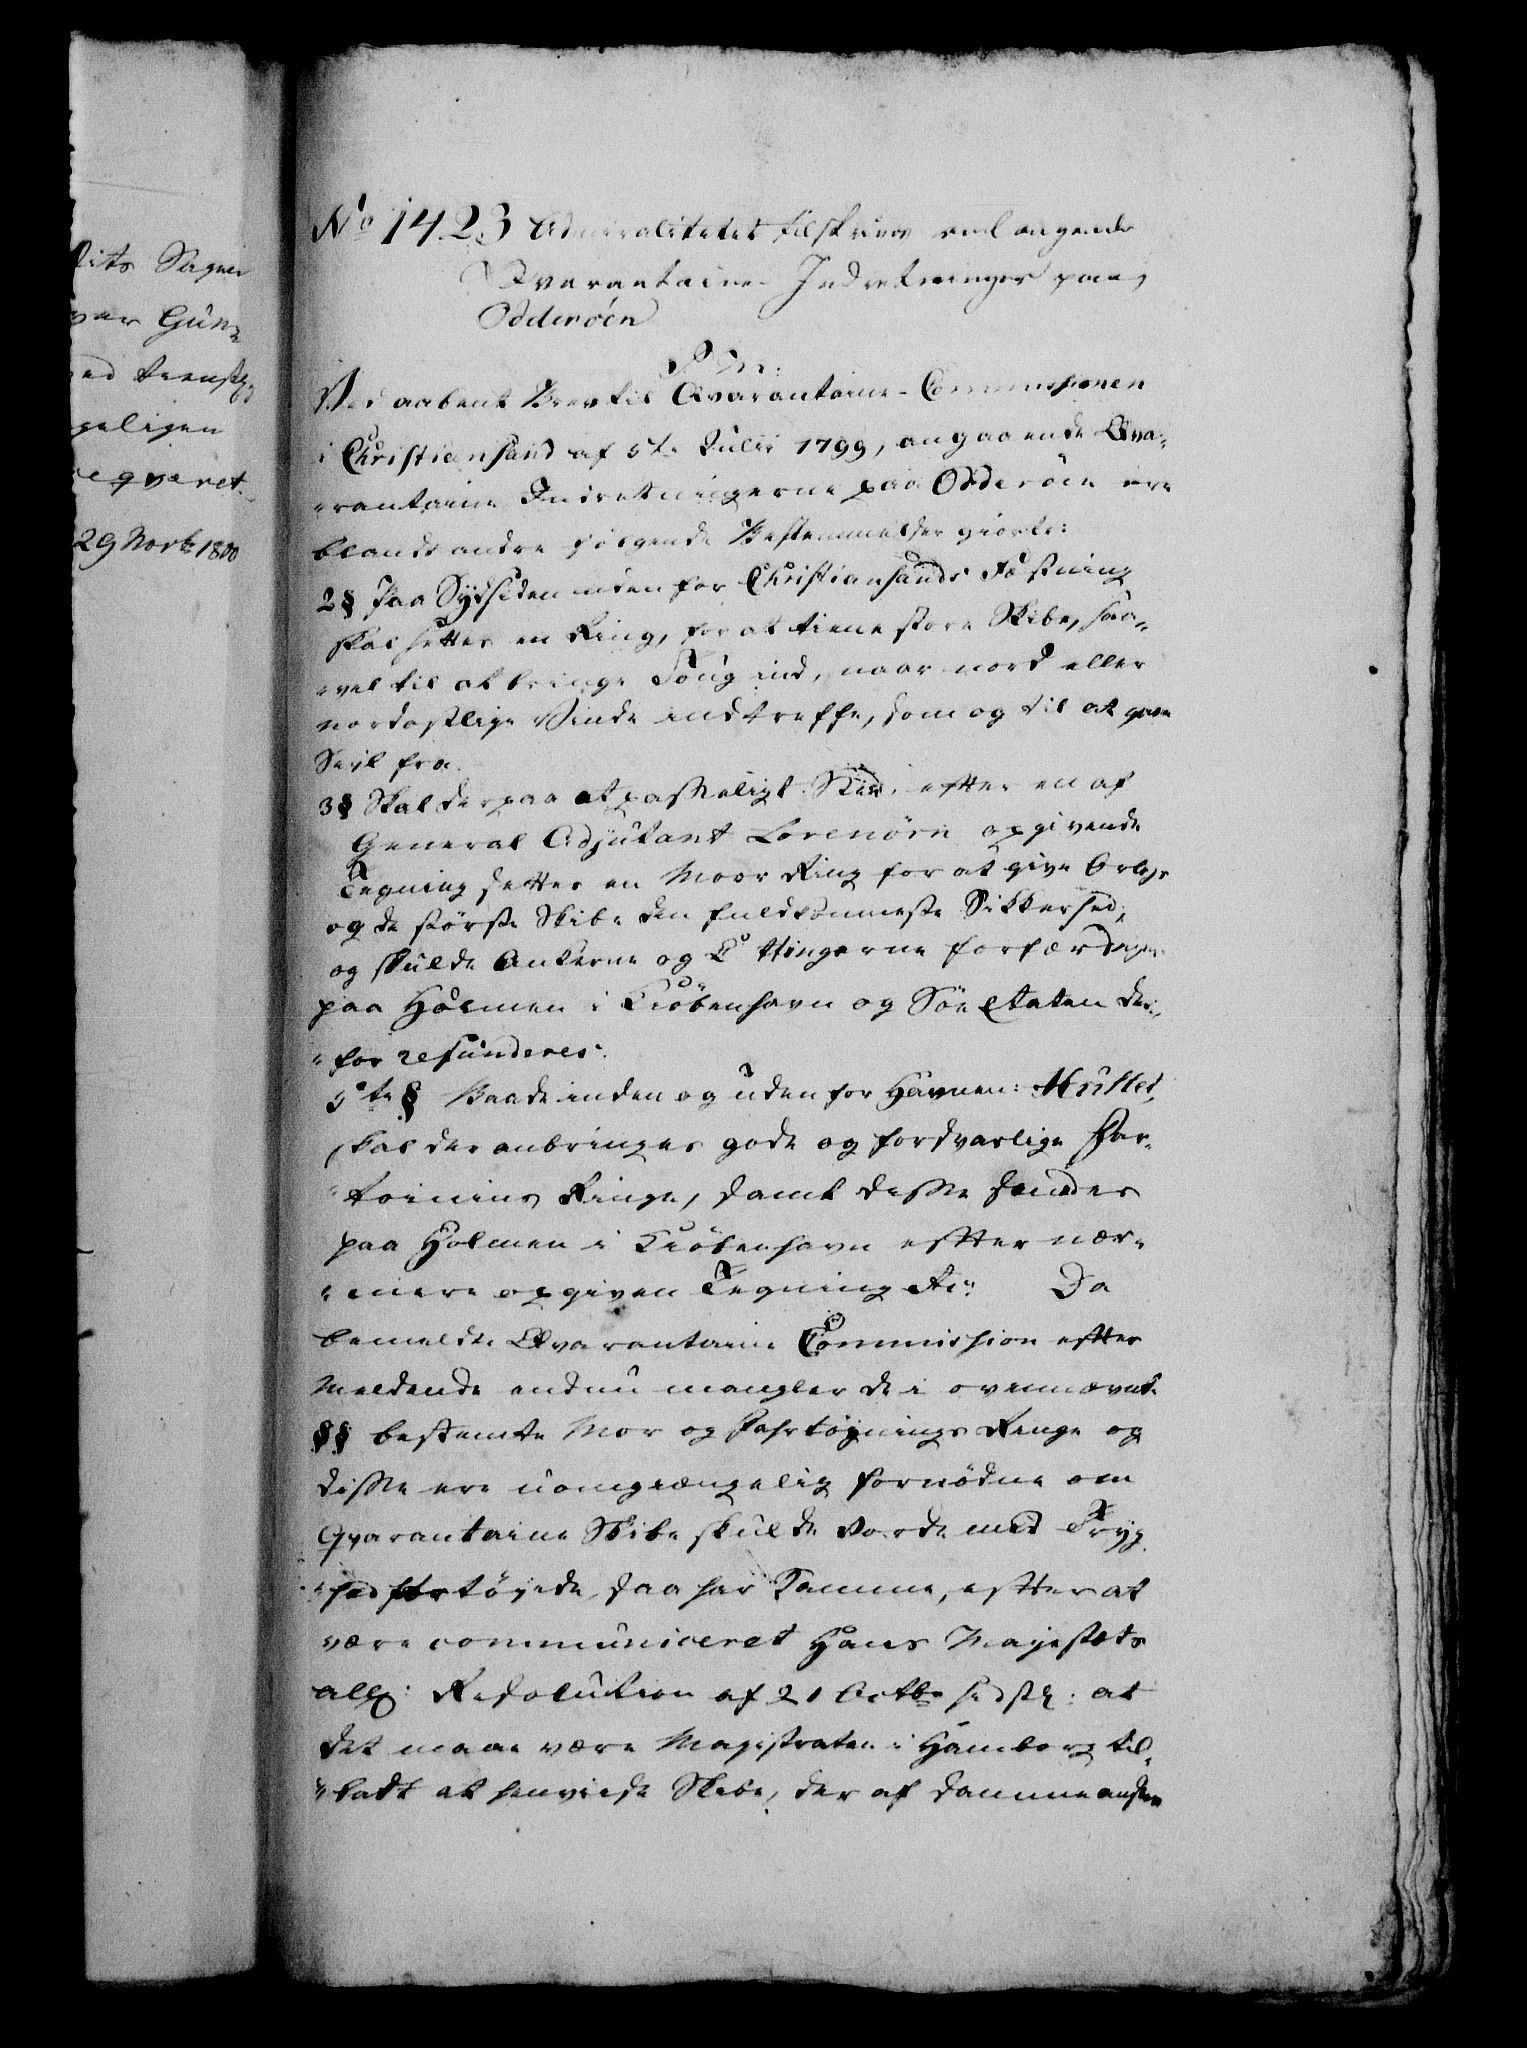 lits Sagner
ver Gun-
ed tienstl:
geligen
eqveret.
29 Novbr 1800
No 1423 Admiralitetet tilskrives anlangende
Qvarantaine-Indretninger paa
Odderöen
P. M.
Ved aabent Brev til Qvarantaine-Commissionen
i Christiansand af 5te Julii 1799, angaaende Qva-
rantaine Indretningerne paa Odderöen ere
blandt andre følgende Bestemmelser giorte:
2§ Paa Sydsiden uden for Christiansands Fæstning
skal settes en Ring, for at tiene store Skibe, saa-
vel til at bringe Toug ind, naar nord eller
nordostlige Vinde indtreffe, som og til at gaae
Seyl fra.
3§ Skal der paa et passeligt Sted, efter en af
General Adjutant Lövenörn opgivende
Tegning settes en Moor Ring for at give Orlogs
og de störste Skibe den fuldkomneste Sikkerhed,
og skulde Ankerne og Kiettingerne forfærdiges
paa Holmen i Kiöbenhavn og Söe Etaten der-
for refunderes.
5te § Baade inden og uden for Havnen: Hullet,
skal der anbringes gode og forsvarlige For-
töinings Ringe, samt disse smides
paa Holmen i Kiöbenhavn efter nær-
mere opgiven Tegning etc: Da
bemeldte Qvarantaine Commission efter
Meldende endnu mangler de i ovennævnte
§§ bestemte Mor og Fortöynings Ringe og
disse ere uomgiængelig fornödne om
Qvarantaine Skibe skulde vorde med Tryg-
hed fortöyede, saa har Kammeret, efter at
være communiceret Hans Majestæts
allr: Resolution af 21 Octbr sidstl: at
det maae være Magistraten i Hamborg til-
ladt at henviise Skibe, der af samme ansees